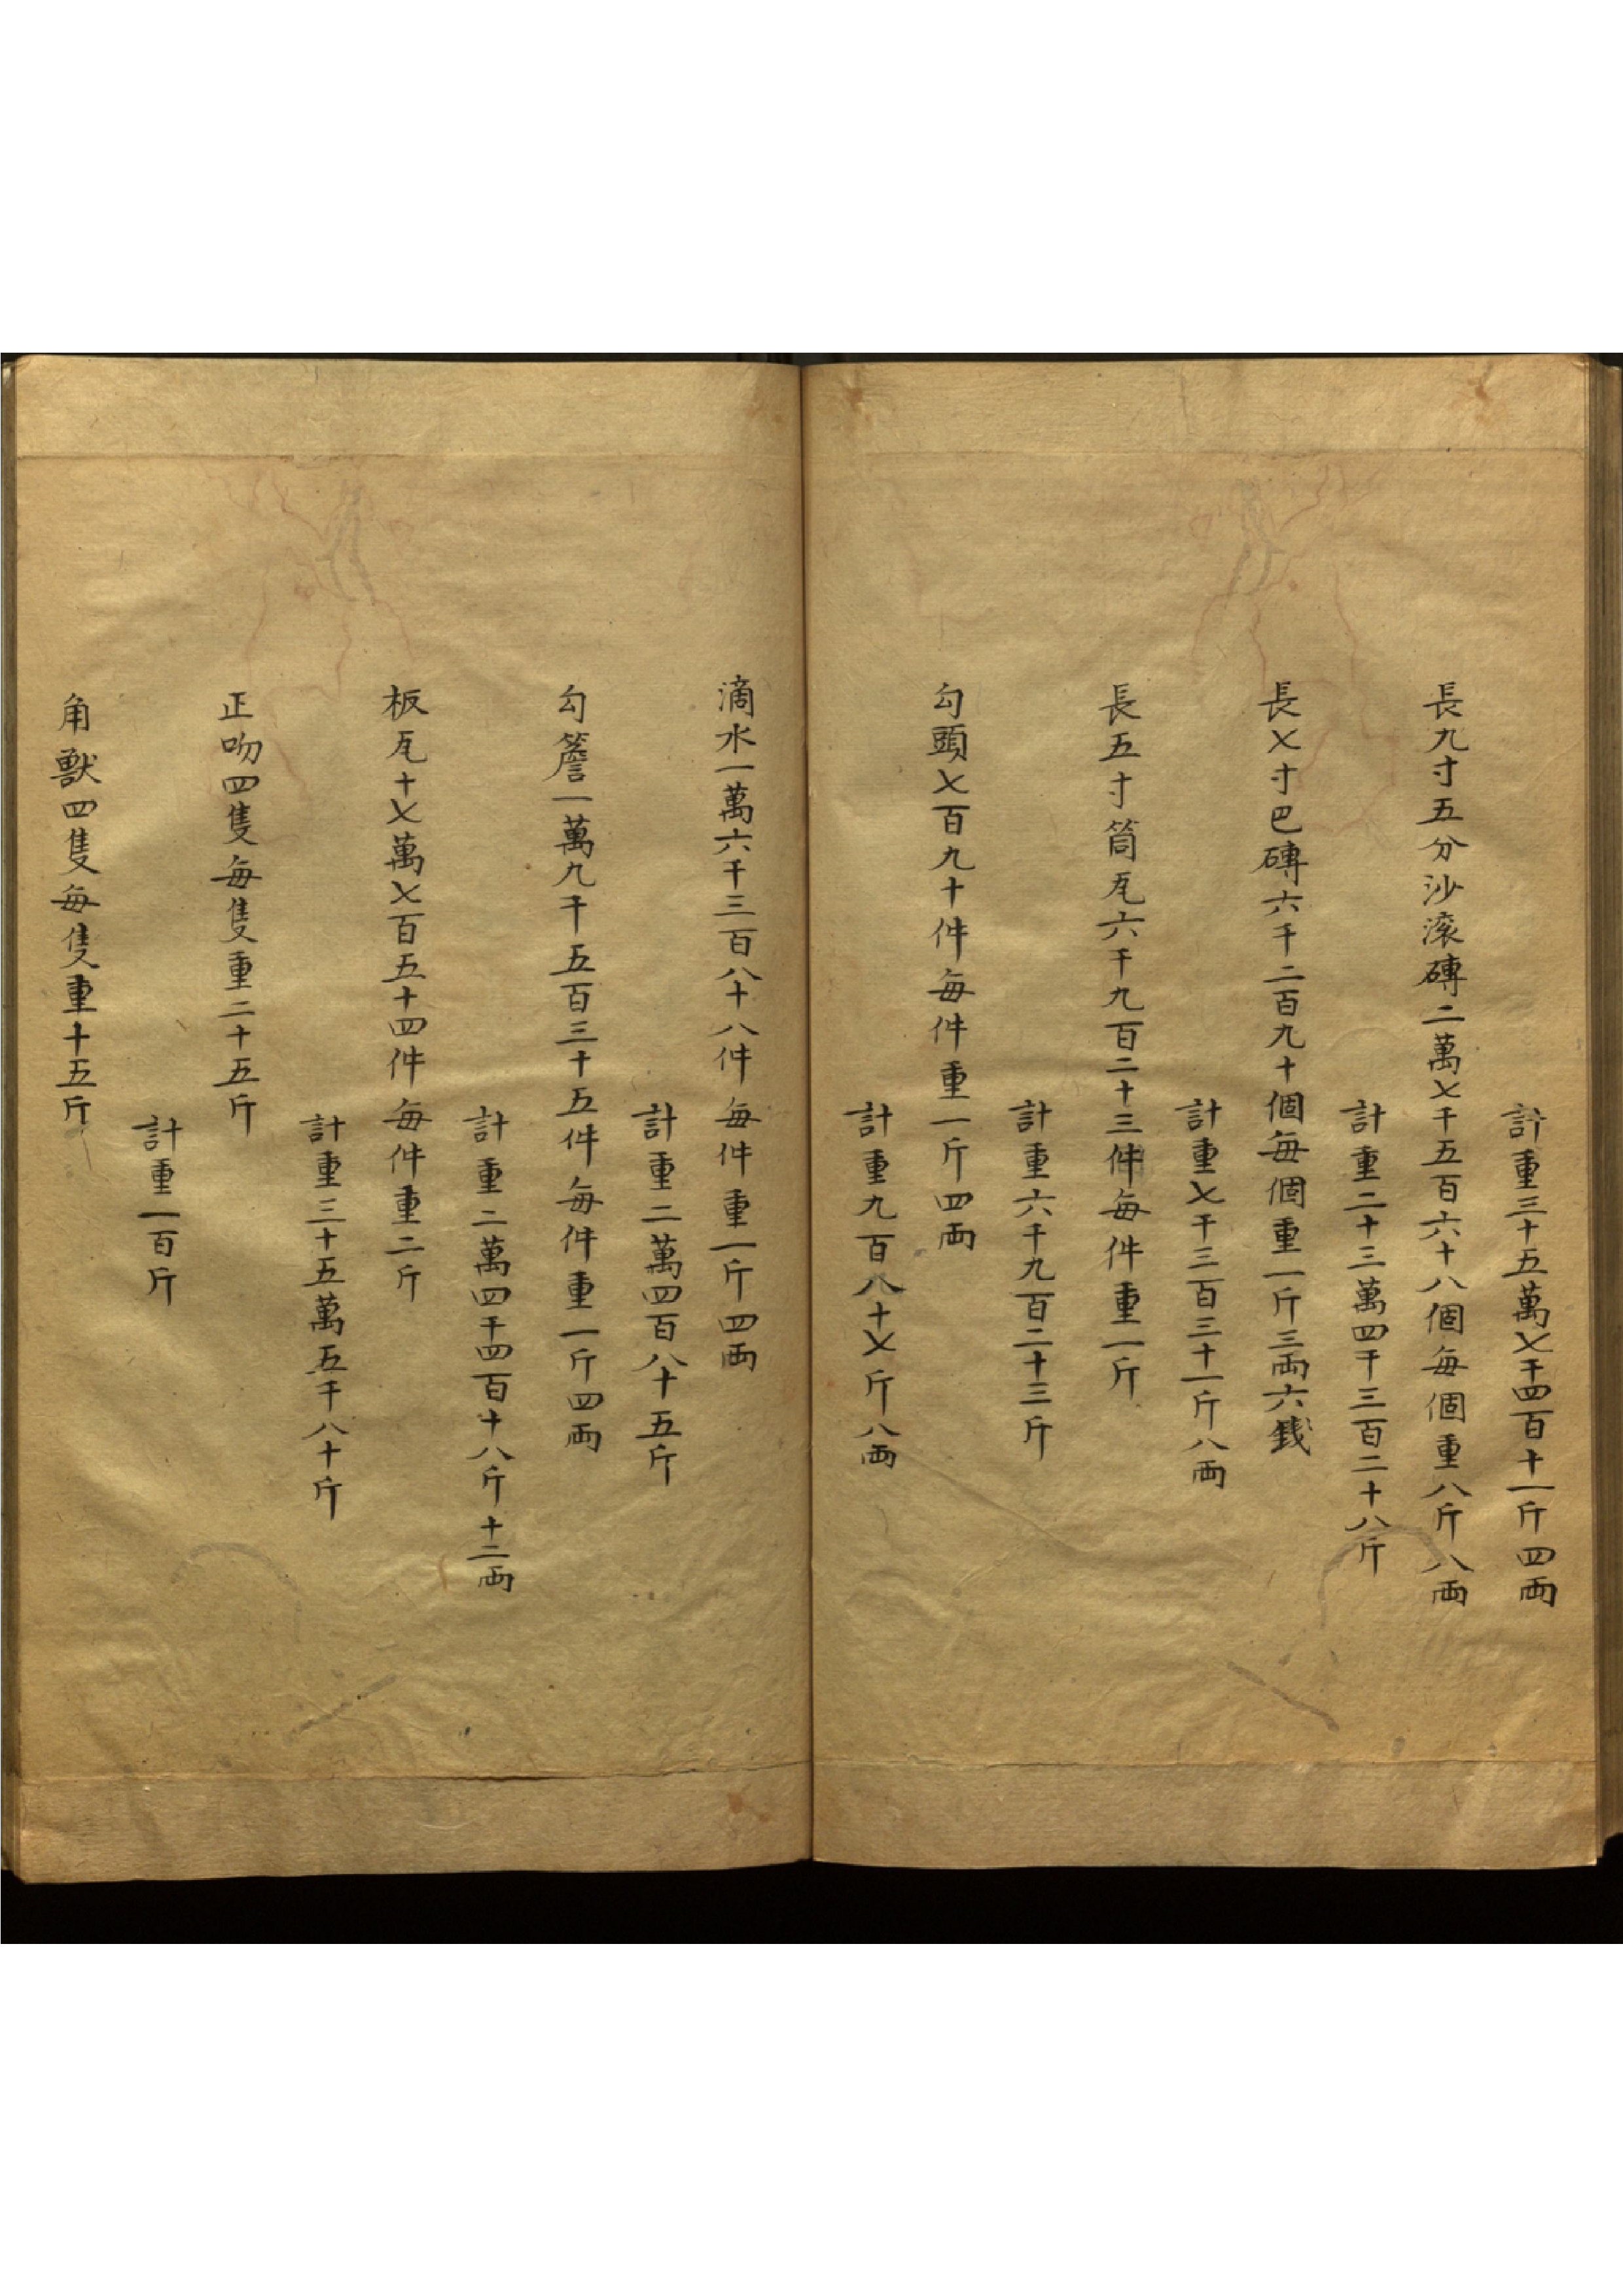 計重三十五萬七千四百十一斤四兩
長九寸五分沙滚磚二萬七千五百六十八個每個重八斤八兩
計重二十三萬四千三百二十八斤
長七寸巴磚六千二百九十個每個重一斤三兩六錢
計重七千三百三十一斤八兩
長五寸筒瓦六千九百二十三件每件重一斤
計重六千九百二十三斤
勾頭七百九十件每件重一斤四兩
計重九百八十七斤八兩
滴水一萬六千三百八十八件每件重一斤四兩
計重二萬四百八十五斤
勾簷一萬九千五百三十五件每件重一斤四兩
計重二萬四千四百十八斤十二兩
板瓦十七萬七百五十四件每件重二斤
計重三十五萬五千八十斤
正吻四隻每隻重二十五斤
計重一百斤
角獸四隻每隻重十五斤